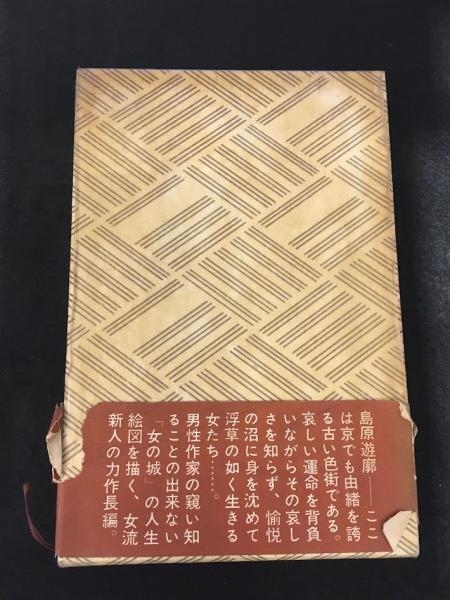 島原遊廓――ここ
は京でも由緒を誇
る古い色街である。
哀しい運命を背負
いながらその哀し
さを知らず、愉悦
の沼に身を沈めて
浮草の如く生きる
女たち……。
男性作家の窺い知
ることの出来ない
「女の城」の人生
絵図を描く、女流
新人の力作長編。